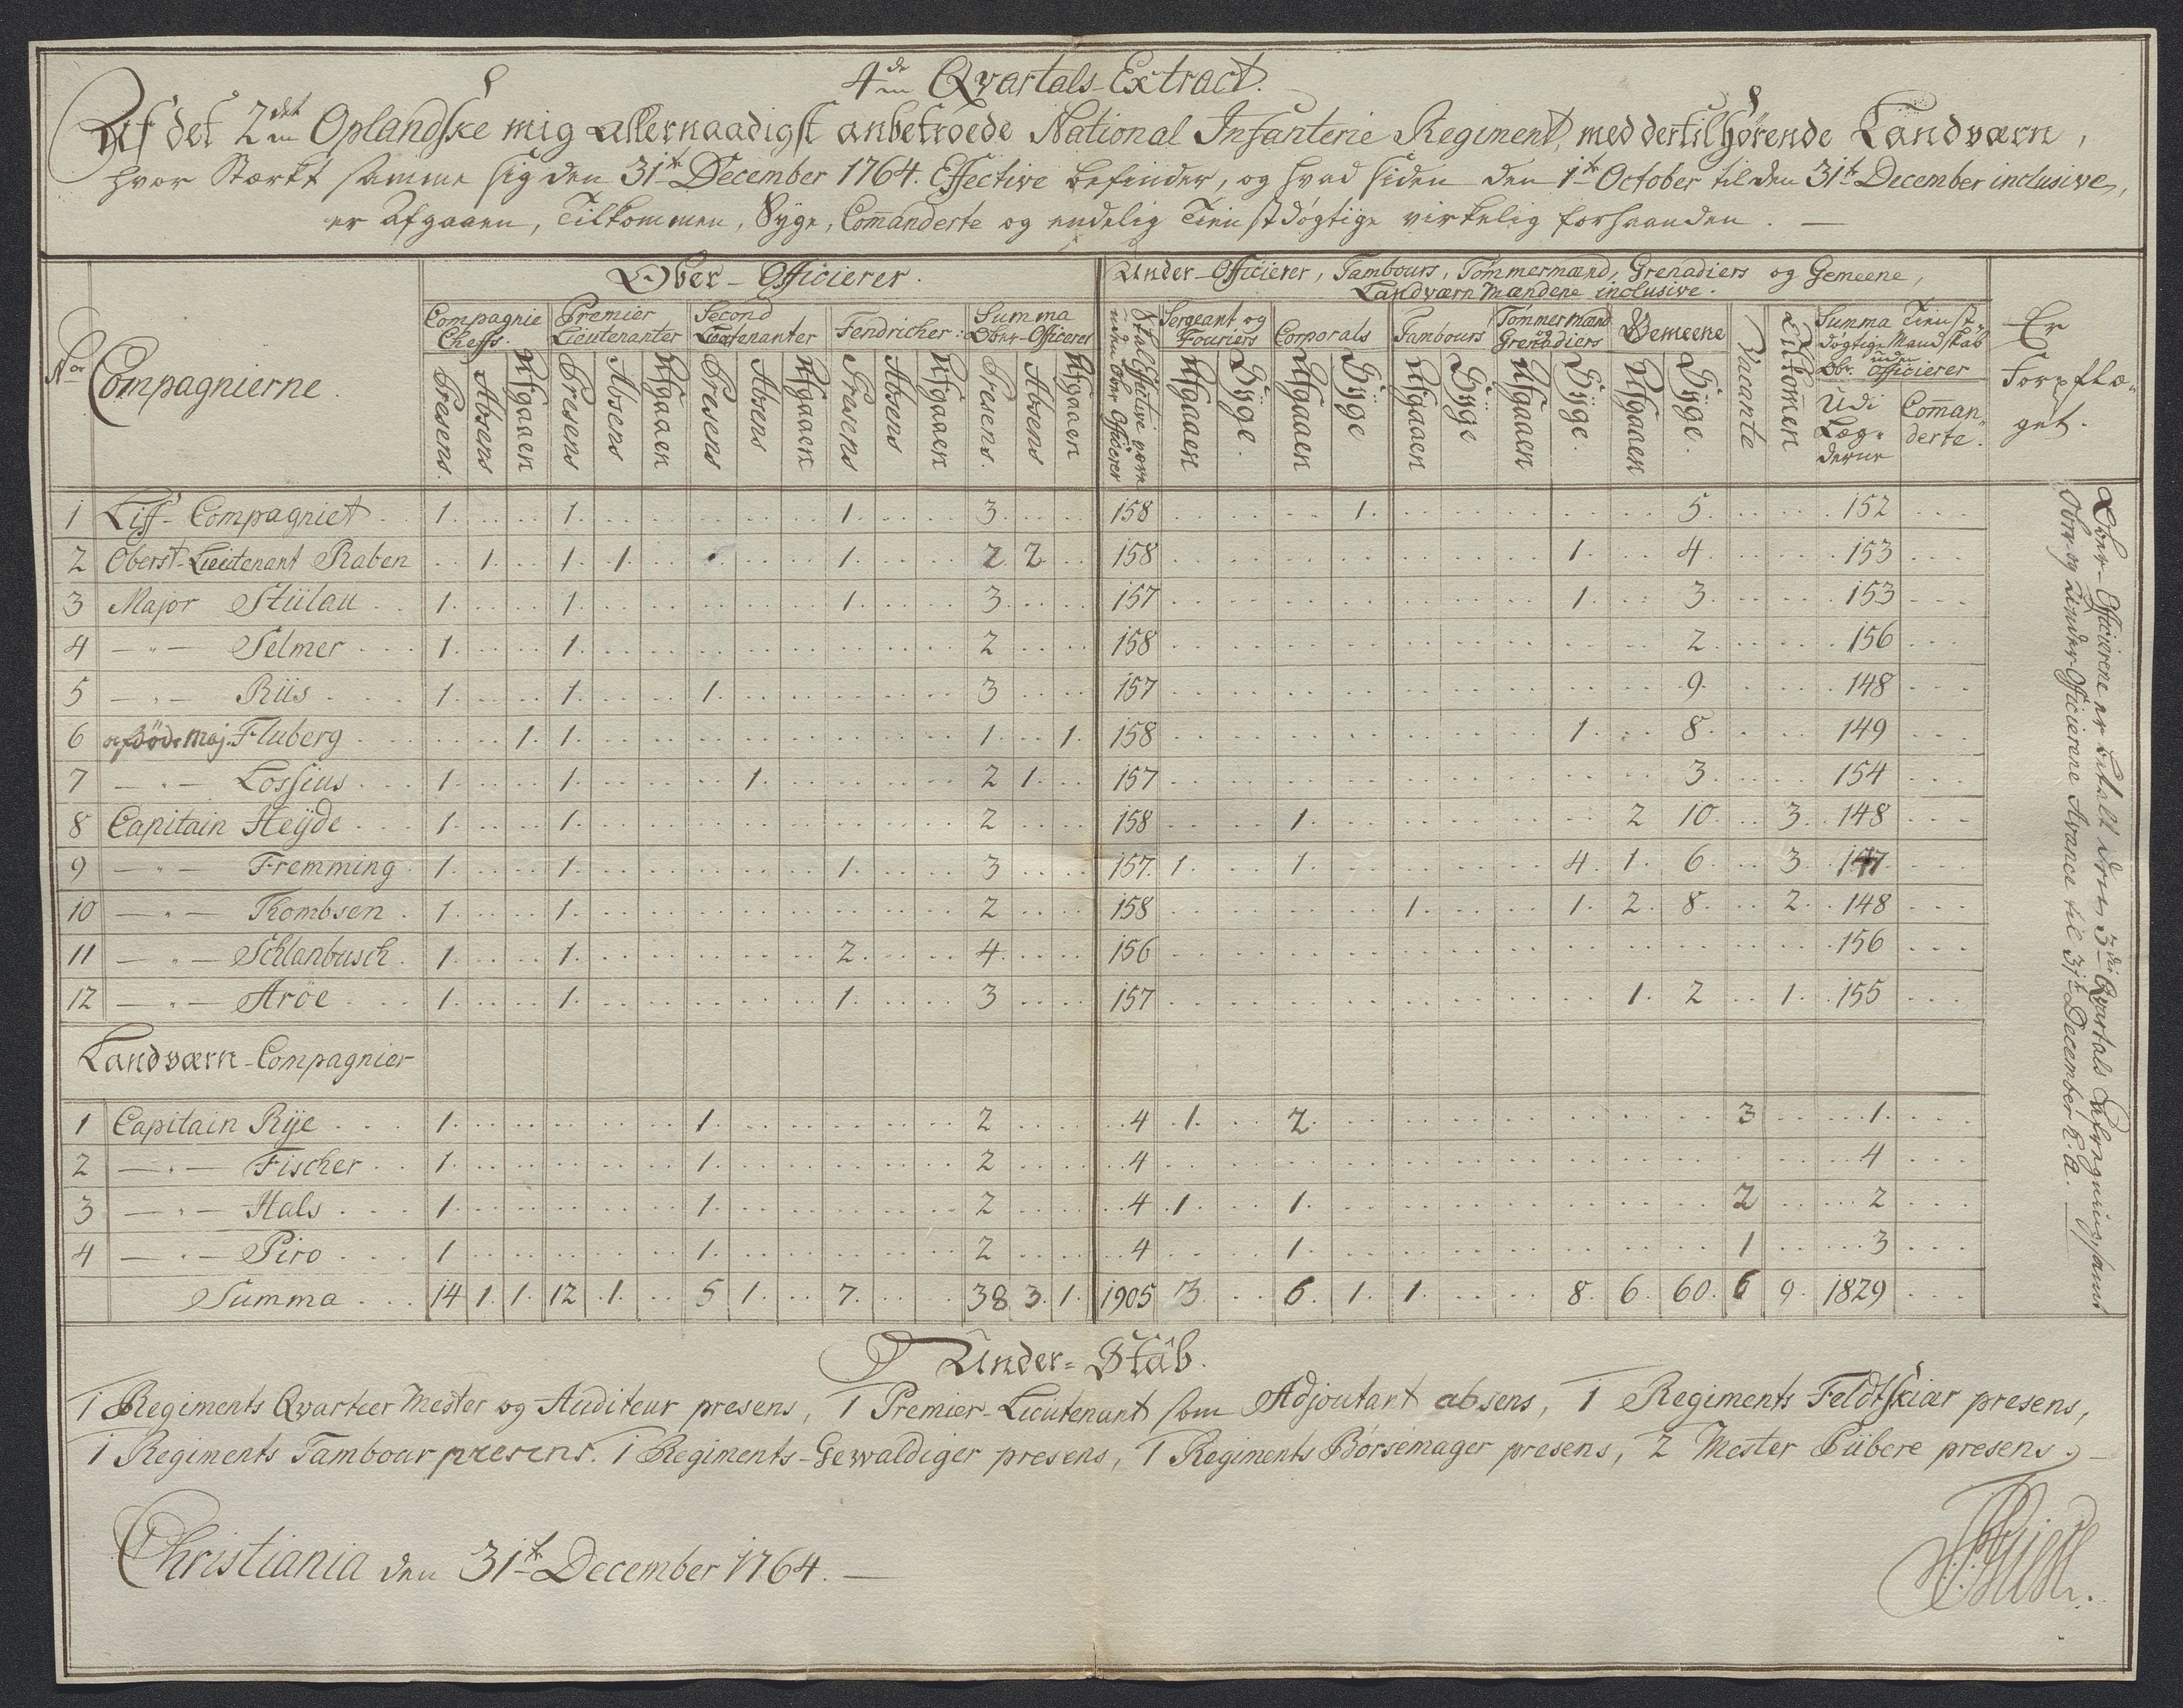 4de Qvartals-Extract.
Af det 2det Oplandske mig allernaadigst anbetroede National Infanterie Regiment, med dertil hørende Landværn,
hvor Stærkt samme sig den 31te December 1764. Effective befinder, og hvad siden den 1te October til den 31te December inclusive,
er Afgaaen, Tilkommen, Syge, Comanderte og endelig Tienstdøgtige virkelig forhaanden. —
Ober-Officierer.
Under-Officierer, Tambours, Tømmermænd, Grenadiers og Gemeene,
Landværn Mændene inclusive.
Compagnie Cheffs. Premier Lieutenanter Second Lieutenanter Fendricher: Summa Ober-Officerer
Skal Effective være uden Ober Officierer
Sergeant og Fouriers Corporals Tambours Tømmermænd og Grenadiers Gemeene Vacante Tilkomen
Summa Tienst-døgtige Mandskab uden Obr. Officierer
Er Forpflæ-get.
No Compagnierne.
Presens. Absens Afgaaen Presens Absens Afgaaen Presens Absens Afgaaen Presens Absens Afgaaen Presens. Absens Afgaaen
Afgaaen Syge. Afgaaen Syge Afgaaen Syge Afgaaen Syge. Afgaaen Syge. Udi Læg-derne Coman-derte.
1 Liff-Compagniet 1. 1. 1. 3. 158 1. 5. 152
2 Oberst-Lieutenant Raben 1. 1. 1. 1. 2 2. 158 1. 4. 153
3 Major Stülau 1. 1. 1. 3. 157 1. 3. 153
4 — " — Selmer 1. 1. 2 158 2. 156
5 — " — Riis 1. 1. 1. 3. 157 9. 148
6 afdøde Maj. Fluberg 1. 1. 1. 1. 158 1. 8. 149
7 — " — Lossius 1. 1. 1. 2 1. 157 3. 154
8 Capitain Heÿde 1. 1. 2 158 1. 2 10. 3. 148
9 — " — Fremming 1. 1. 1. 3 157. 1. 1. 4. 1. 6. 3. 147
10 — " — Thombsen 1. 1. 2 158 1. 1. 2. 8. 2. 148
11 — " — Schlanbusch 1. 1. 2. 4. 156 156
12 — " — Aröe 1. 1. 1. 3 157 1. 2 1. 155
Landværn-Compagnier
1 Capitain Rÿe 1. 1. 2 4 1. 2. 3 1.
2 — " — Fischer 1. 1. 2 4 4
3 — " — Hals 1. 1. 2 4 1. 1. 2 2
4 — " — Piro 1. 1. 2 4 1. 1 3
Summa 14 1. 1. 12 1. 5 1. 7. 38 3. 1. 1905 3. 6. 1. 1. 8. 6. 60. 6 9. 1829
Ober-Officierene er betalt deres 3die Qvartals samt
Obr- og Under Officierene Avance til 31te December h. a. —
Under-Stab.
1 Regiments Qvarteer Mester og Auditeur presens, 1 Premier-Lieutenant som Adjoutant absens, 1 Regiments Feldtskiær presens,
1 Regiments Tambour presens. 1 Regiments-Gewaldiger presens, 1 Regiments Børsemager presens, 2 Mester Piibere presens. —
Christiania den 31te December 1764. —